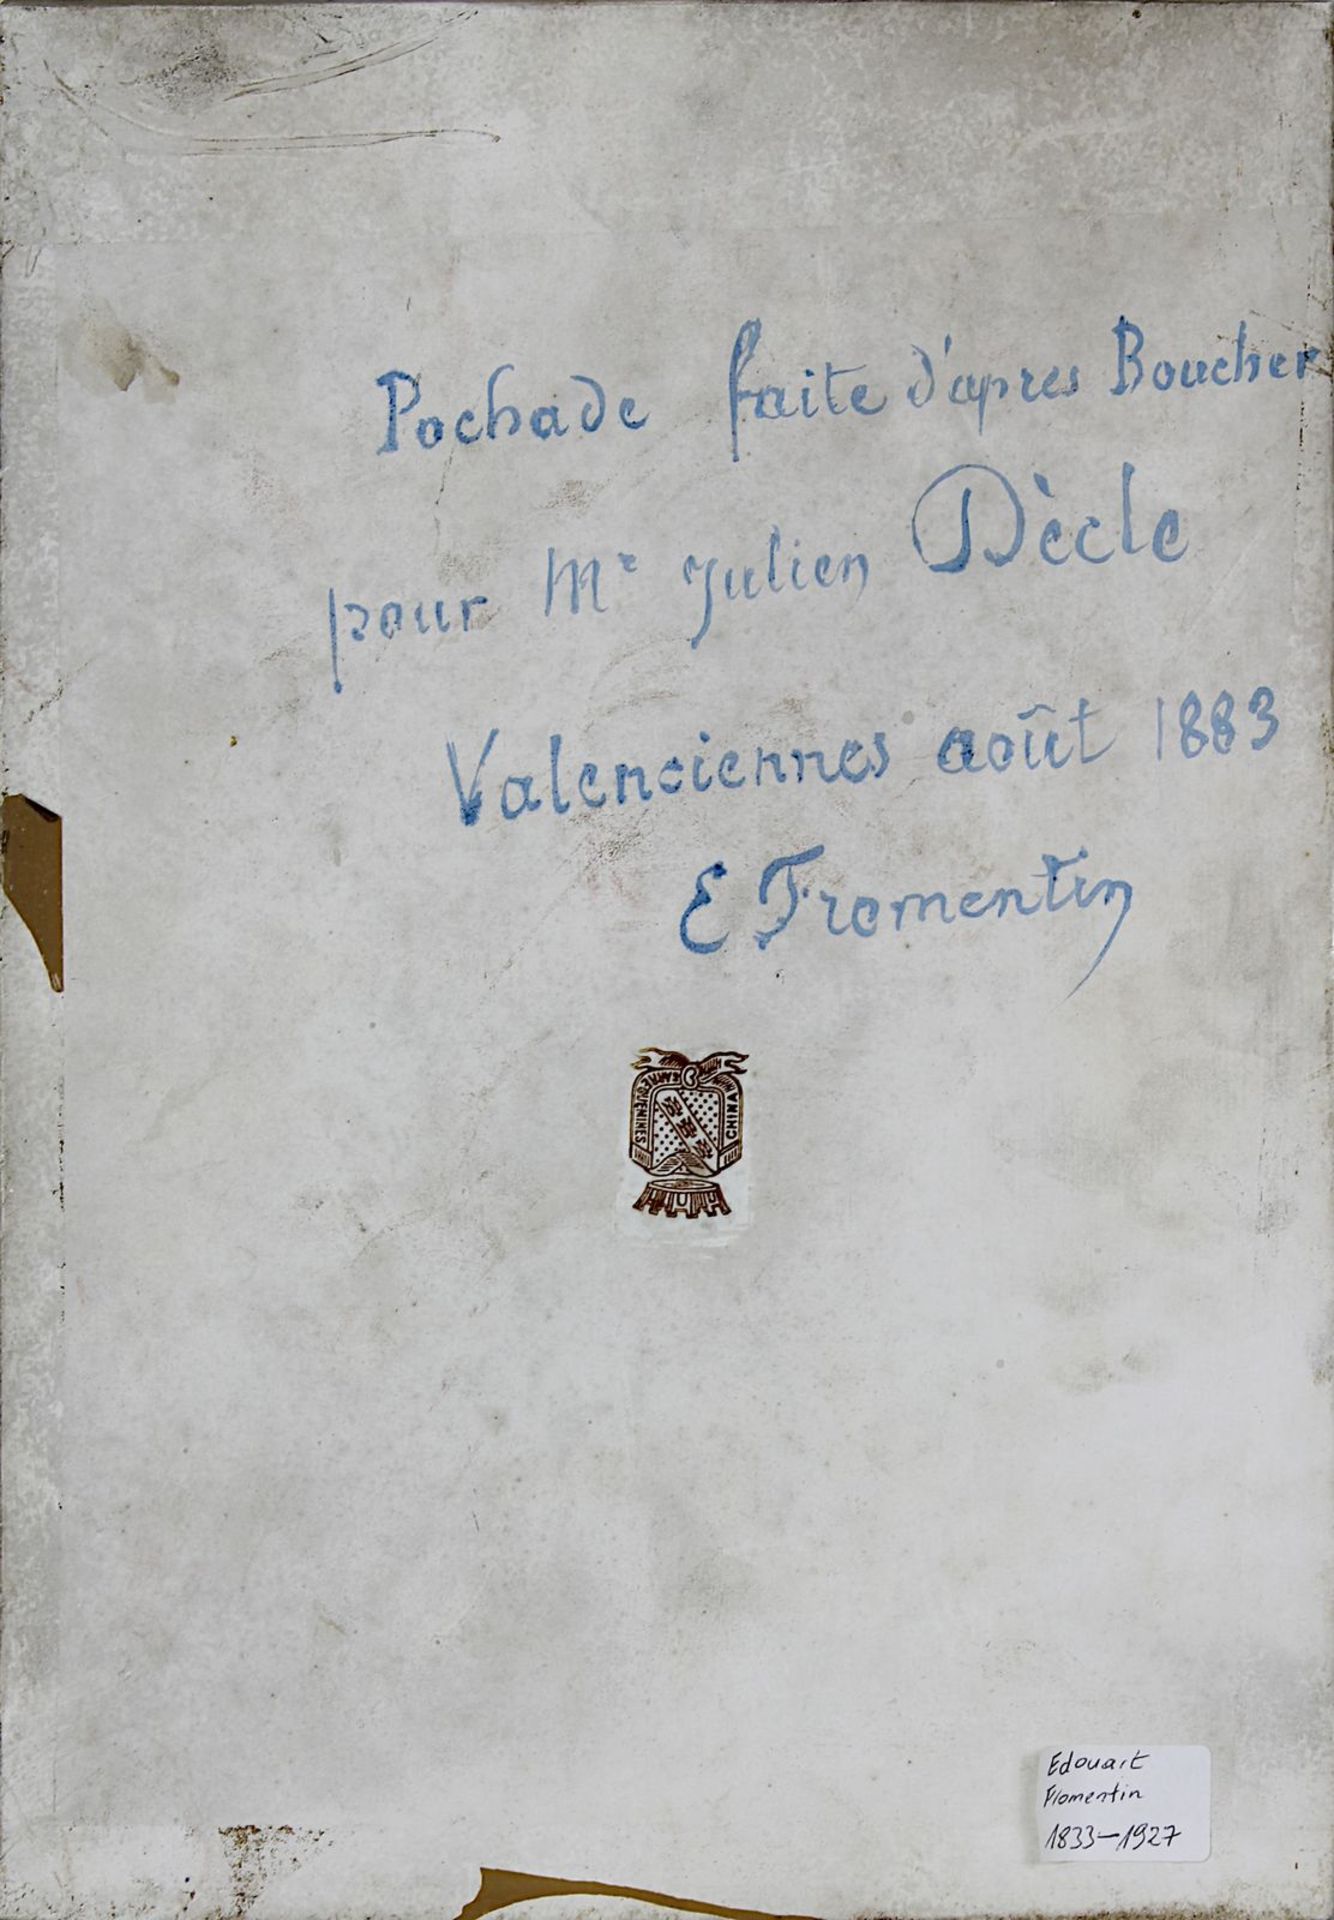 Pochade faite d'apres Boucher
pour Mr Julien Dècle
Valenciennes août 1883
E Fromentin
SARREGUEMINES
CHINA
Edouart
Flomentin
1833-1927